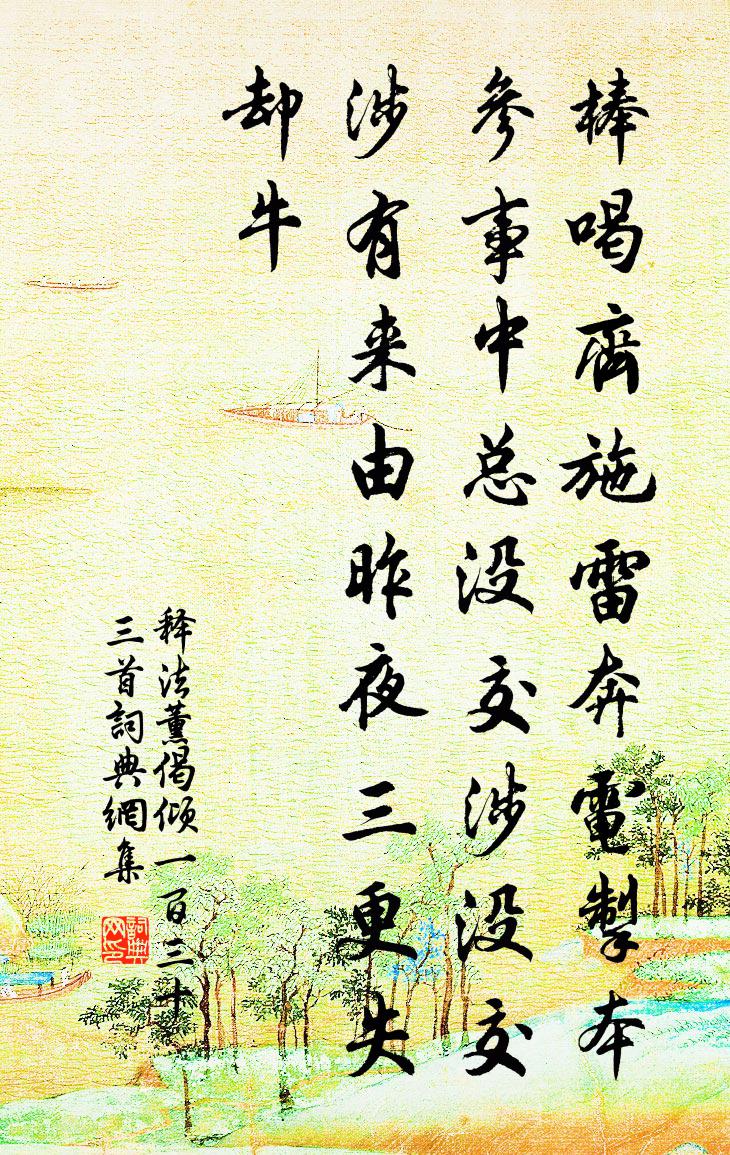 棒喝齊施雷奔電掣本
參事中总没交涉没交
涉有来由昨夜三更失
却牛
释法薰偈倾一百三十
三首詞典網集